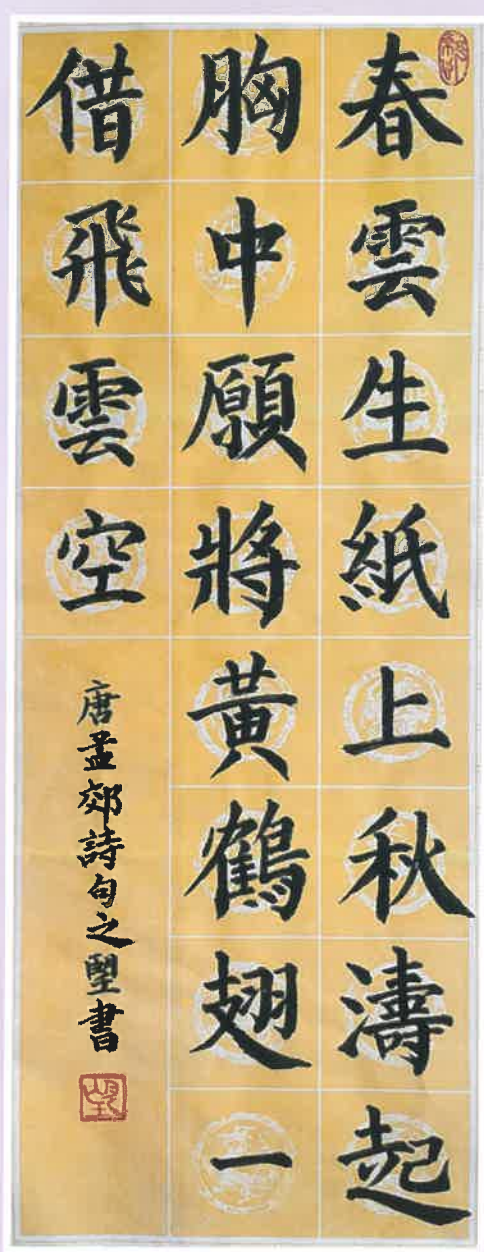 春雲生紙上秋濤起
胸中願將黃鶴翅一
借飛雲空
唐孟郊詩句之書